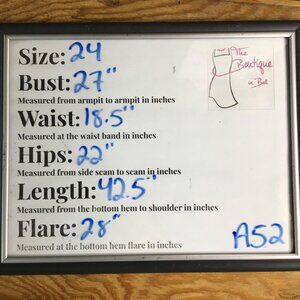 Size: 24
Bust: 27"
Measured from armpit to armpit in inches
Waist: 18.5"
Measured at the waist band in inches
Hips: 22"
Measured from side seam to seam in inches
Length: 42.5"
Measured from the bottom hem to shoulder in inches
Flare: 28"
Measured at the bottom hem flare in inches
The
Boutique
A52